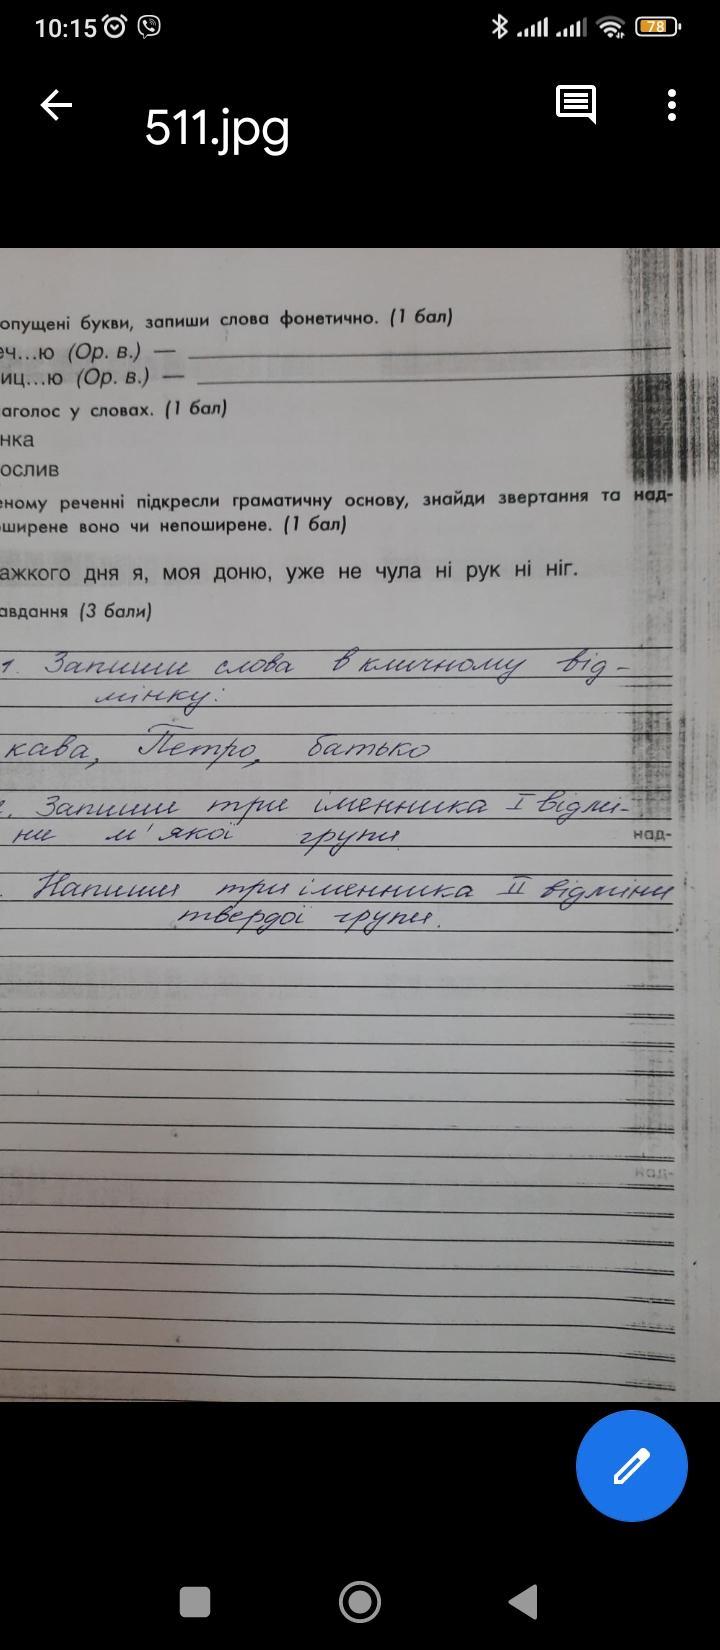 10:15 78
511.jpg
опущені букви, запиши слова фонетично. (1 бал)
еч...ю (Ор. в.) —
иц...ю (Ор. в.) —
аголос у словах. (1 бал)
нка
ослив
еному реченні підкресли граматичну основу, знайди звертання та над-
ширене воно чи непоширене. (1 бал)
ажкого дня я, моя доню, уже не чула ні рук ні ніг.
авдання (3 бали)
1. Запиши слова в кличному від-
мінку:
кава, Петро, батько
. Запиши три іменника I відмі-
ни м'якої групи
над-
. Напиши три іменника II відміни
твердої групи.